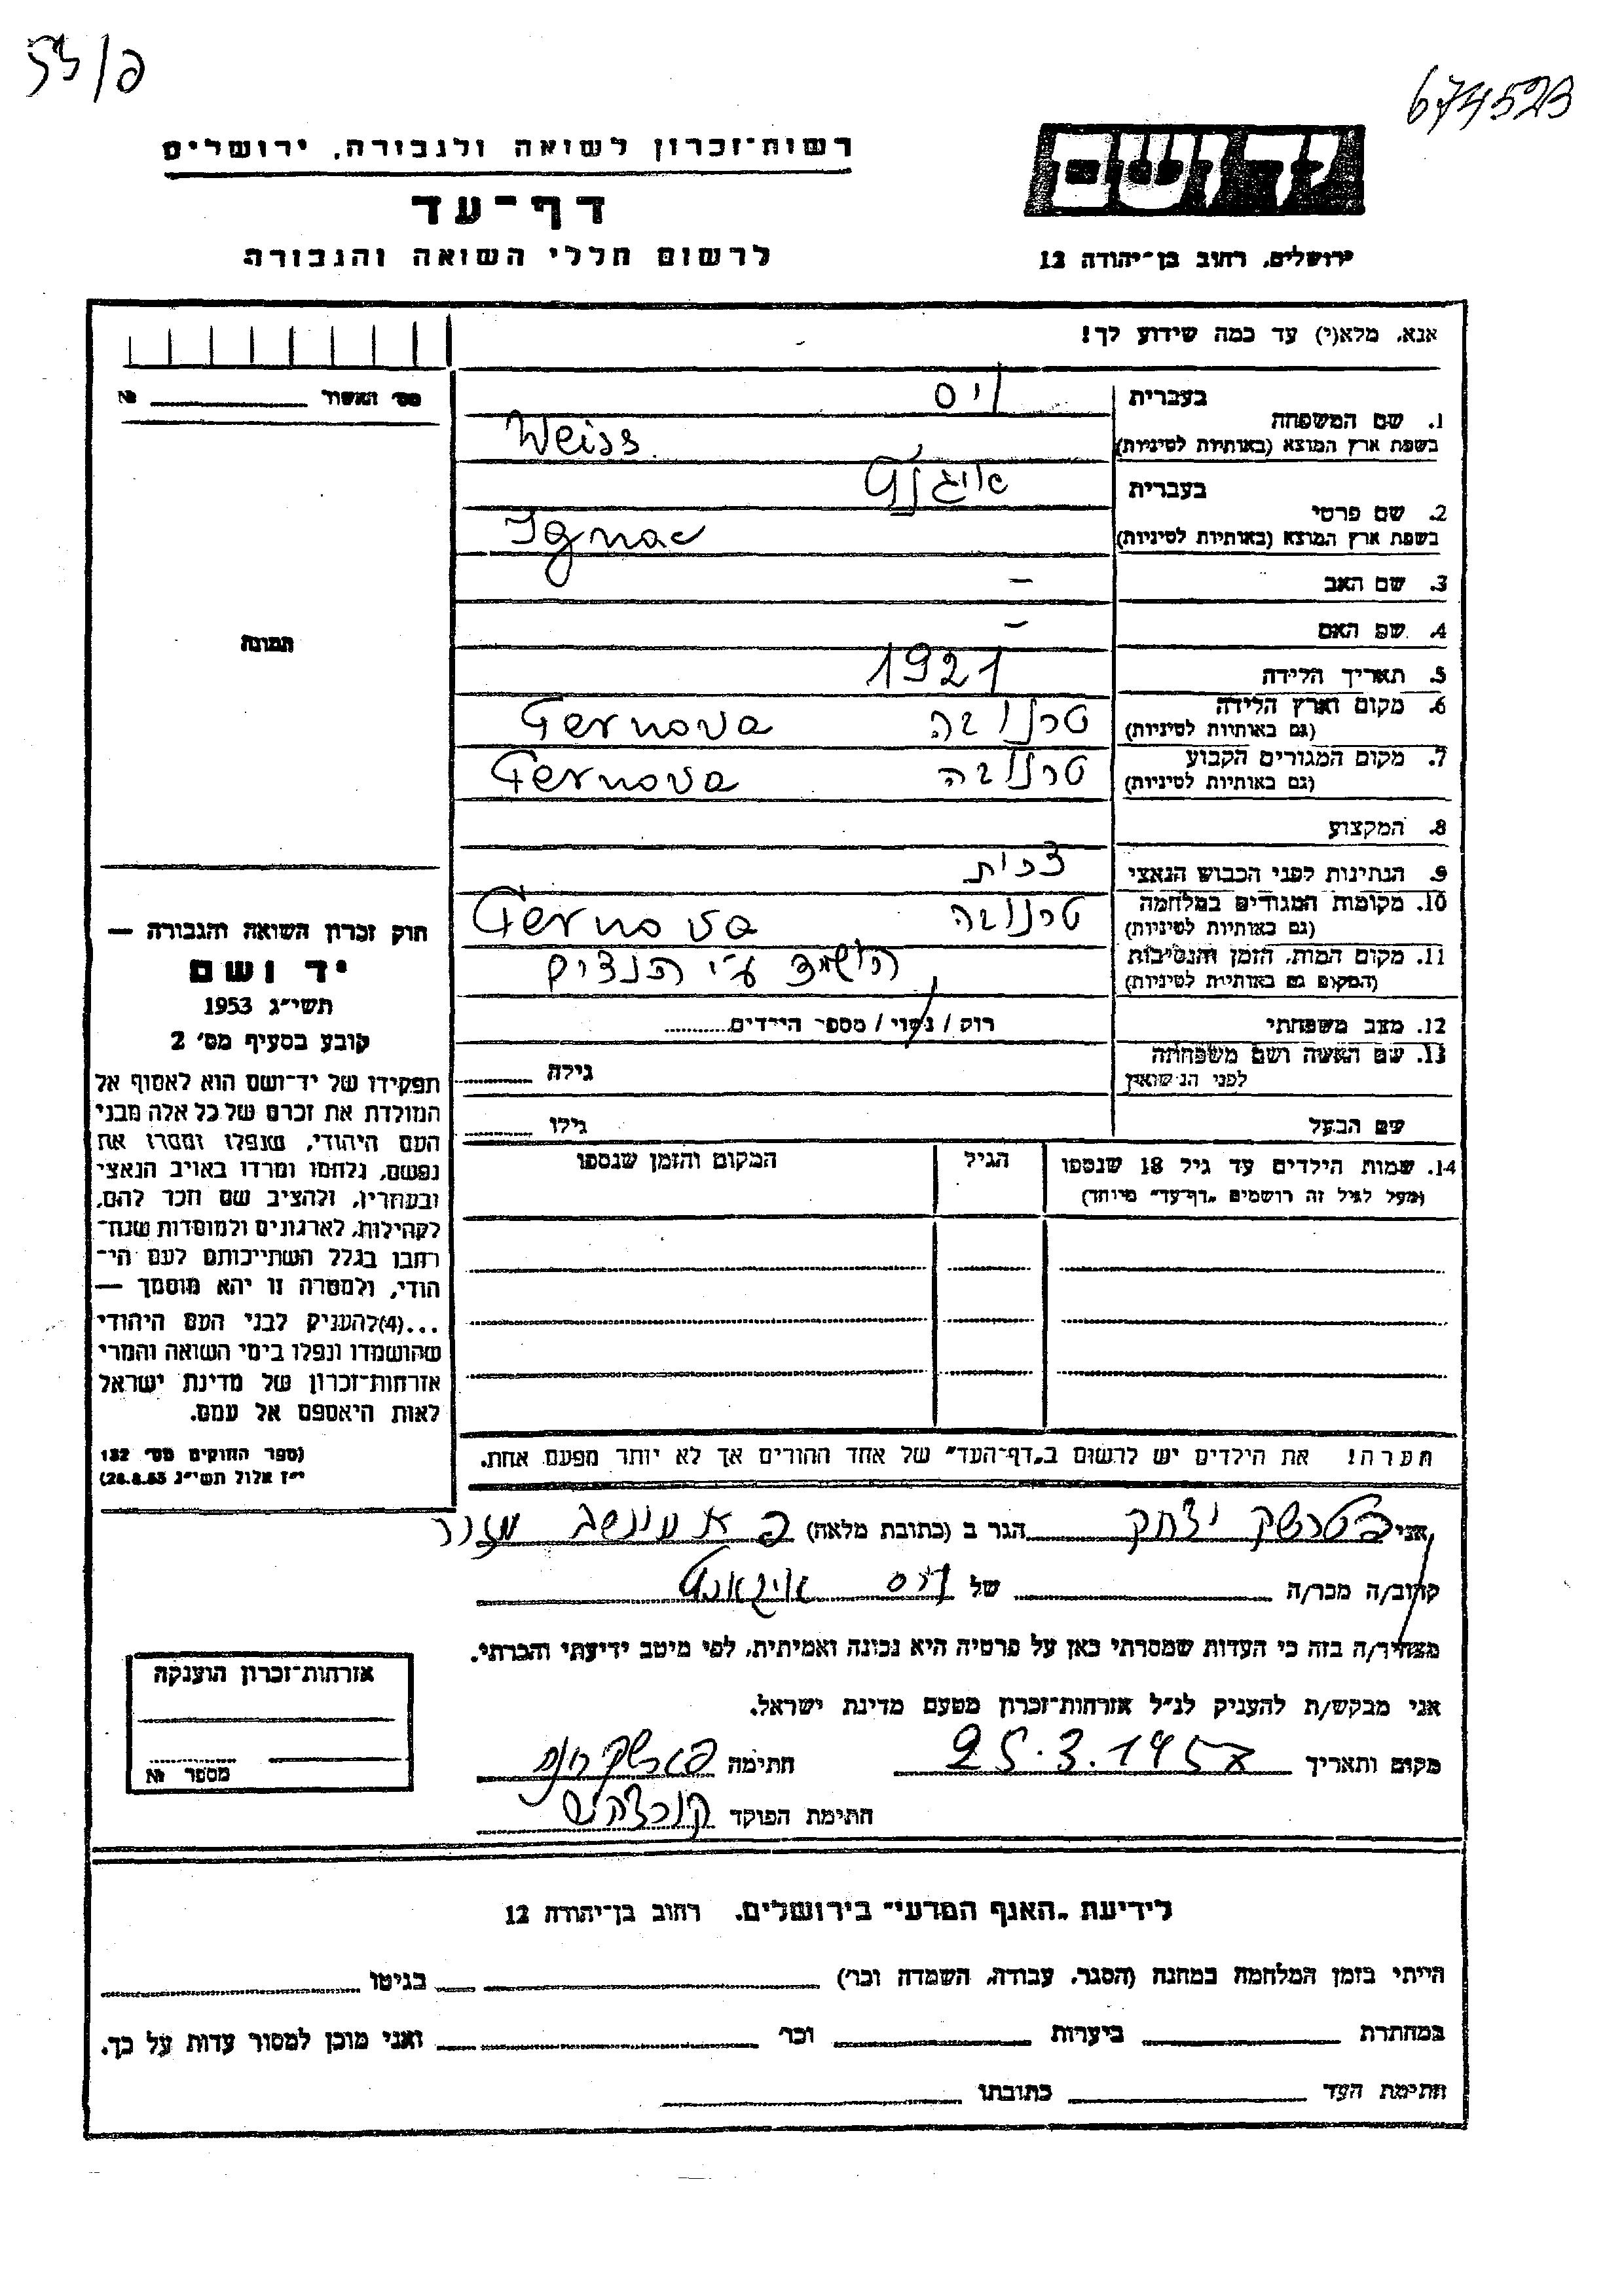 55/פ
674523
יד ושם
ירושלים, רחוב בן-יהודה 12
רשות-זכרון לשואה ולגבורה, ירושלים
דף-עד
לרשום חללי השואה והגבורה
אנא, מלא(י) עד כמה שידוע לך!
מס' האשור № 
1. שם המשפחה
בעברית ויס
בשפת ארץ המוצא (באותיות לטיניות) Weiss
2. שם פרטי
בעברית
בשפת ארץ המוצא (באותיות לטיניות) Ignac
3. שם האב –
4. שם האם –
5. תאריך הלידה 1921
6. מקום וארץ הלידה טרנובה Ternova
(גם באותיות לטיניות)
7. מקום המגורים הקבוע טרנובה Ternova
(גם באותיות לטיניות)
8. המקצוע
9. הנתינות לפני הכבוש הנאצי צכית
10. מקומות המגורים במלחמה טרנובה Ternova
(גם באותיות לטיניות)
11. מקום המות, הזמן והנסיבות הושמד ע"י הנצים
(המקום גם באותיות לטיניות)
12. מצב משפחתי רוק / נשוי / מספר הילדים
13. שם האשה ושם משפחתה גילה
לפני הנישואין
שם הבעל גילו
14. שמות הילדים עד גיל 18 שנספו הגיל המקום והזמן שנספו
(מעל לגיל זה רושמים "דף-עד" מיוחד)
הערה! את הילדים יש לרשום ב"דף-העד" של אחד ההורים אך לא יותר מפעם אחת.
תמונה
חוק זכרון השואה והגבורה —
יד ושם
תשי"ג 1953
קובע בסעיף מס' 2
תפקידו של יד-ושם הוא לאסוף אל
המולדת את זכרם של כל אלה מבני
העם היהודי, שנפלו ומסרו את
נפשם, נלחמו ומרדו באויב הנאצי
ובעוזריו, ולהציב שם וזכר להם,
לקהילות, לארגונים ולמוסדות שנח-
רבו בגלל השתייכותם לעם הי-
הודי, ולמטרה זו יהא מוסמך —
...(4)להעניק לבני העם היהודי
שהושמדו ונפלו בימי השואה והמרי
אזרחות-זכרון של מדינת ישראל
לאות היאספם אל עמם.
(ספר החוקים מס' 132
י"ז אלול תשי"ג 28.8.53)
אני יצחק הגר ב (כתובת מלאה)
קרוב/ה מכר/ה של ויס
מצהיר/ה בזה כי העדות שמסרתי כאן על פרטיה היא נכונה ואמיתית, לפי מיטב ידיעתי והכרתי.
אני מבקש/ת להעניק לנ"ל אזרחות-זכרון מטעם מדינת ישראל.
מקום ותאריך 25.3.1957 חתימה
חתימת הפוקד
אזרחות-זכרון הוענקה
מספר №
לידיעת "האגף המדעי" בירושלים, רחוב בן-יהודה 12
הייתי בזמן המלחמה במחנה (הסגר, עבודה, השמדה וכו') בגיטו
במחתרת ביערות וכו' ואני מוכן למסור עדות על כך.
חתימת העד כתובתו